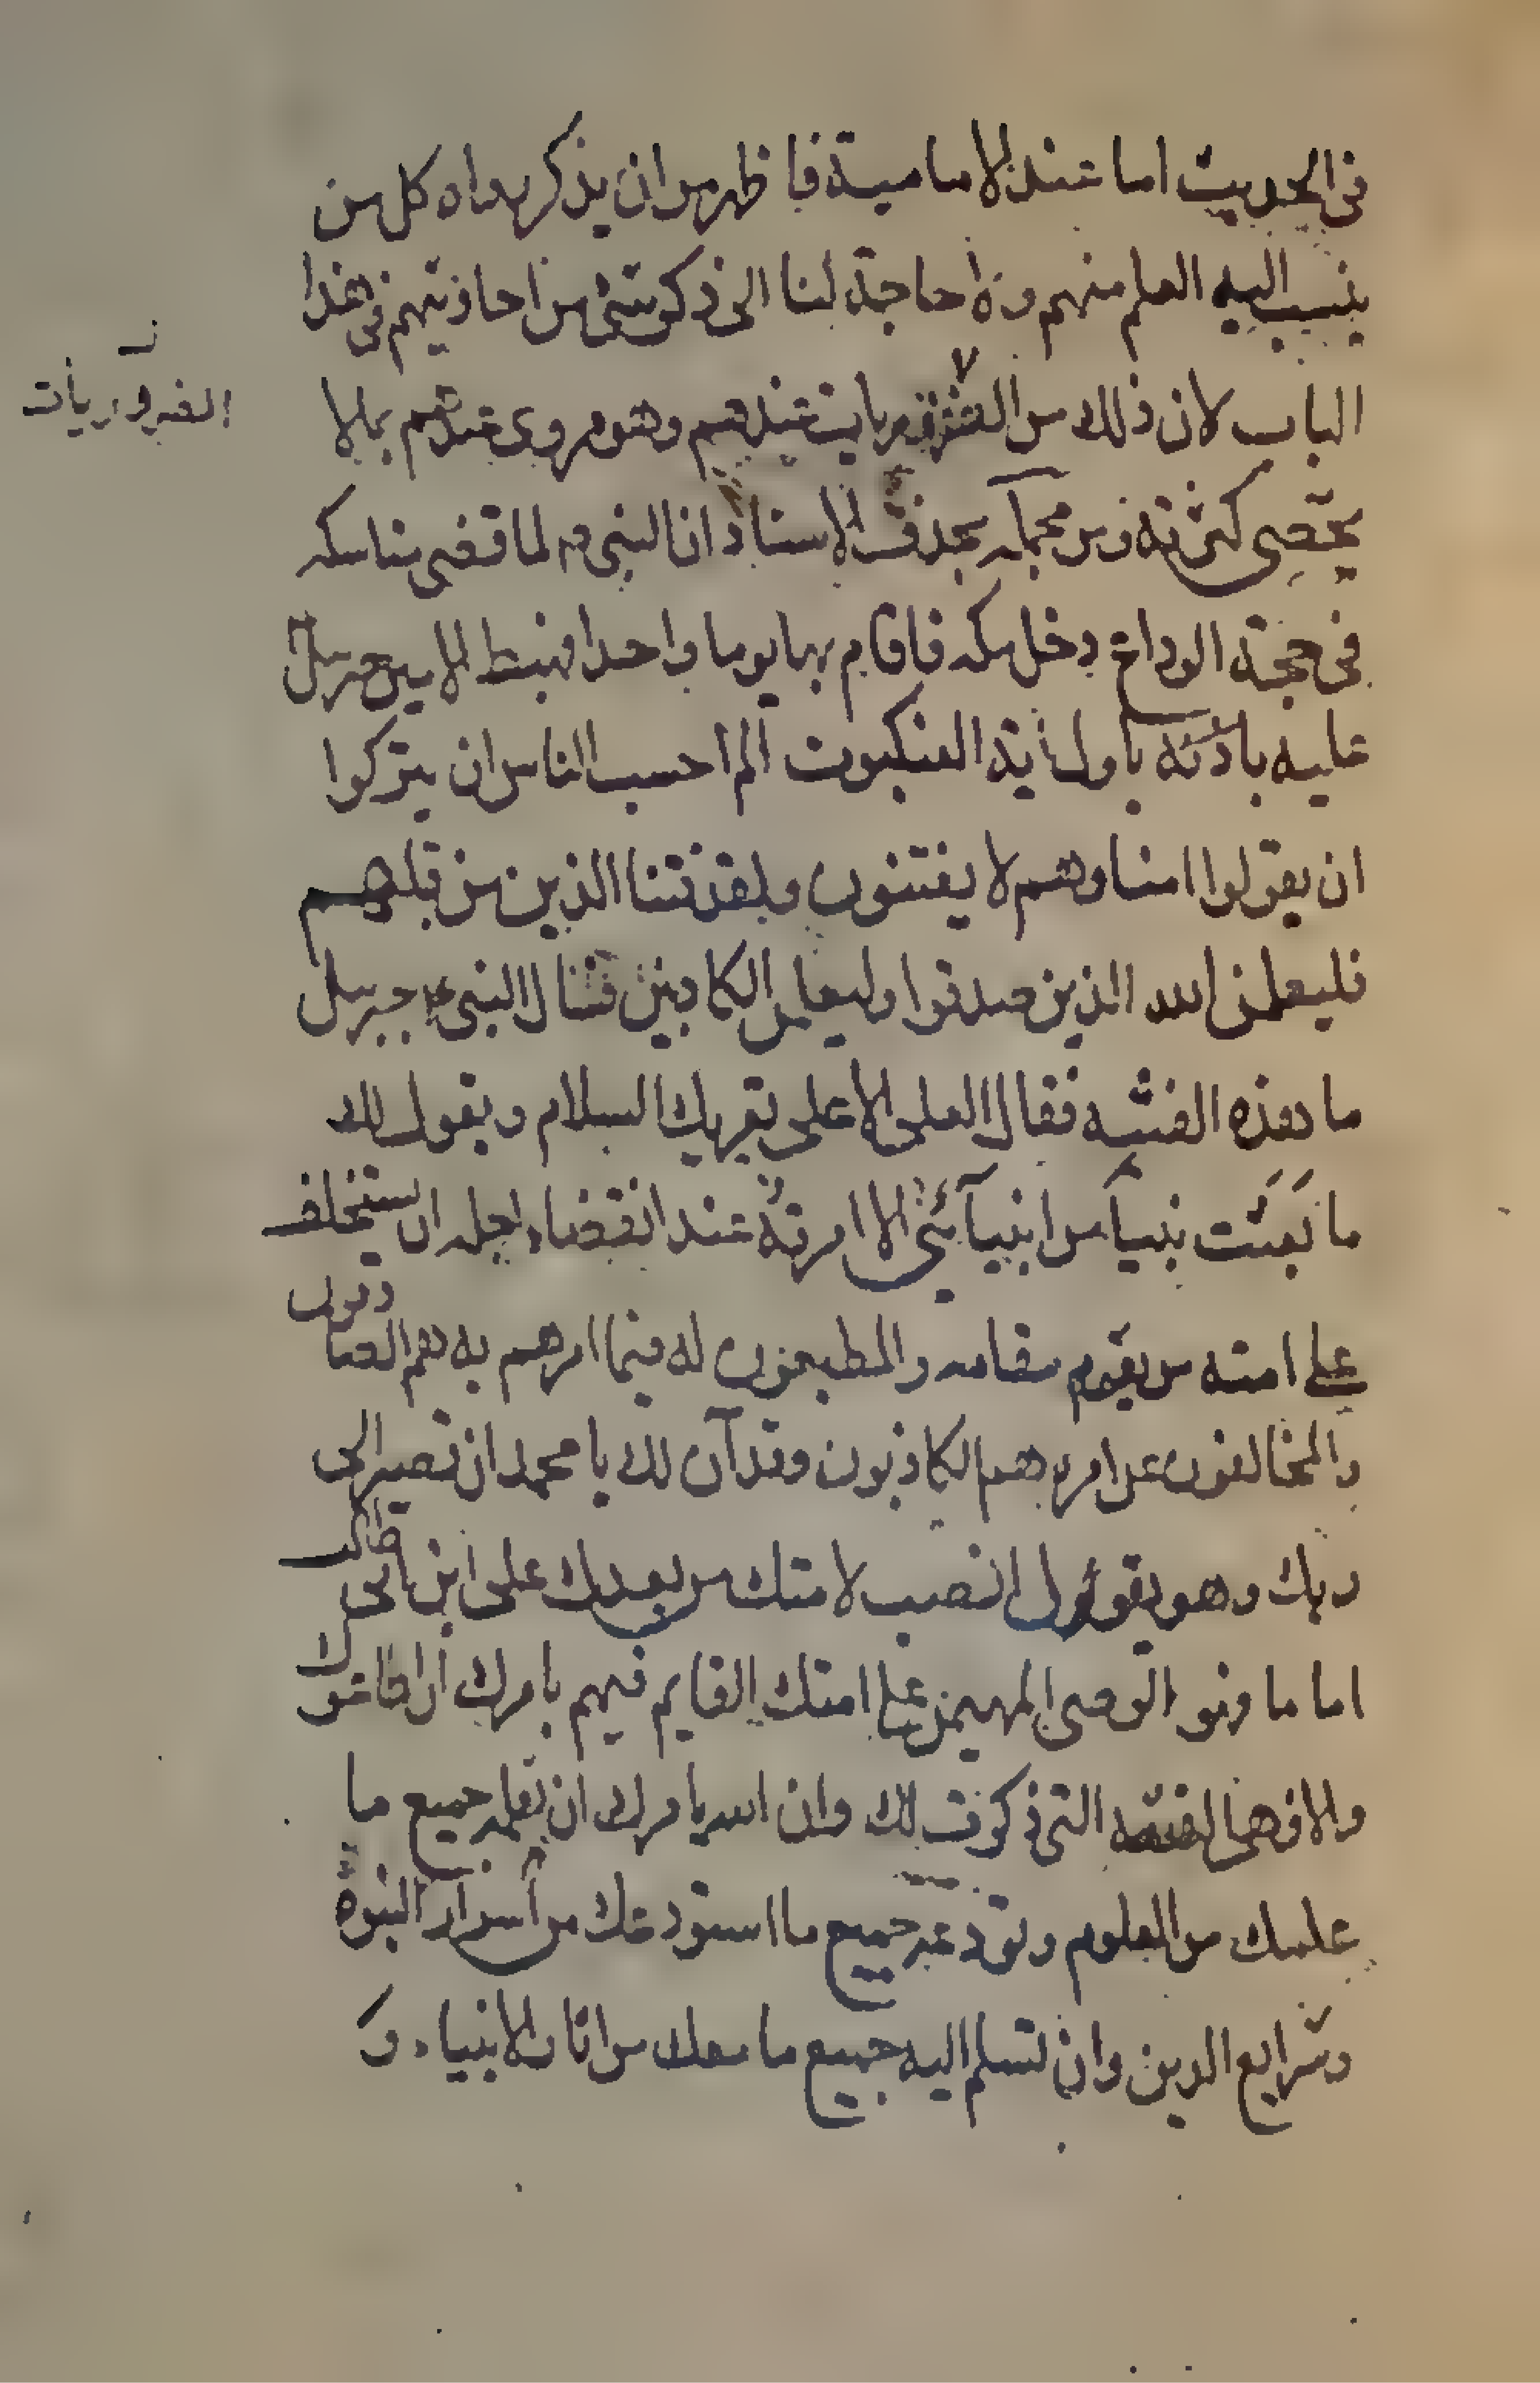 فى الحديث اما عند الامامية فاظهر من ان يذكر بل رواه كل من
ينسب اليه العلم منهم ولا حاجة لنا الى ذكر شئ من احاديثهم فى هذا
الباب لان ذلك من الضروريات عندهم وهو مروى عندهم بما لا
الضروريات
يحصى كثرته ومن مجمله بحذف الاسناد ان النبى ص لما قضى مناسكه
فى حجة الوداع دخل مكه فاقام بها يوما واحدا فهبط الامين جبرئيل
عليه باول آية العنكبوت الم احسب الناس ان يتركوا
ان يقولوا امنا وهم لا يفتنون ولقد فتنا الذين من قبلهم
فليعلمن الله الذين صدقوا وليعلمن الكاذبين فقال النبى ع جبرئيل
ما هذه الفتنه فقال العلى الاعلى يقريك السلام ويقول لك
ما بعثت نبيا من انبيآئى الا امرته عند انقضاء اجله ان يستخلف
على امته من يقوم مقامه والمطيعون له فيما امرهم به هم الصادقون
والمخالفون عن امره هم الكاذبون وقد آن لك يا محمد ان تصير الى
ربك وهو يقول انصب لامتك من بعدك على ابن ابى طالب
اماما وهو الوصى المهيمن على امتك القايم فيهم بامرك ان اطاعوك
والا فهى الفتنه التى ذكرت لك وان الله يامرك ان تعلمه جميع ما
علمك من العلوم وتودعه جميع ما استودعك من أسرار النبوة
وشرايع الدين وان تسلم اليه جميع ما معك من اثار الانبياء و